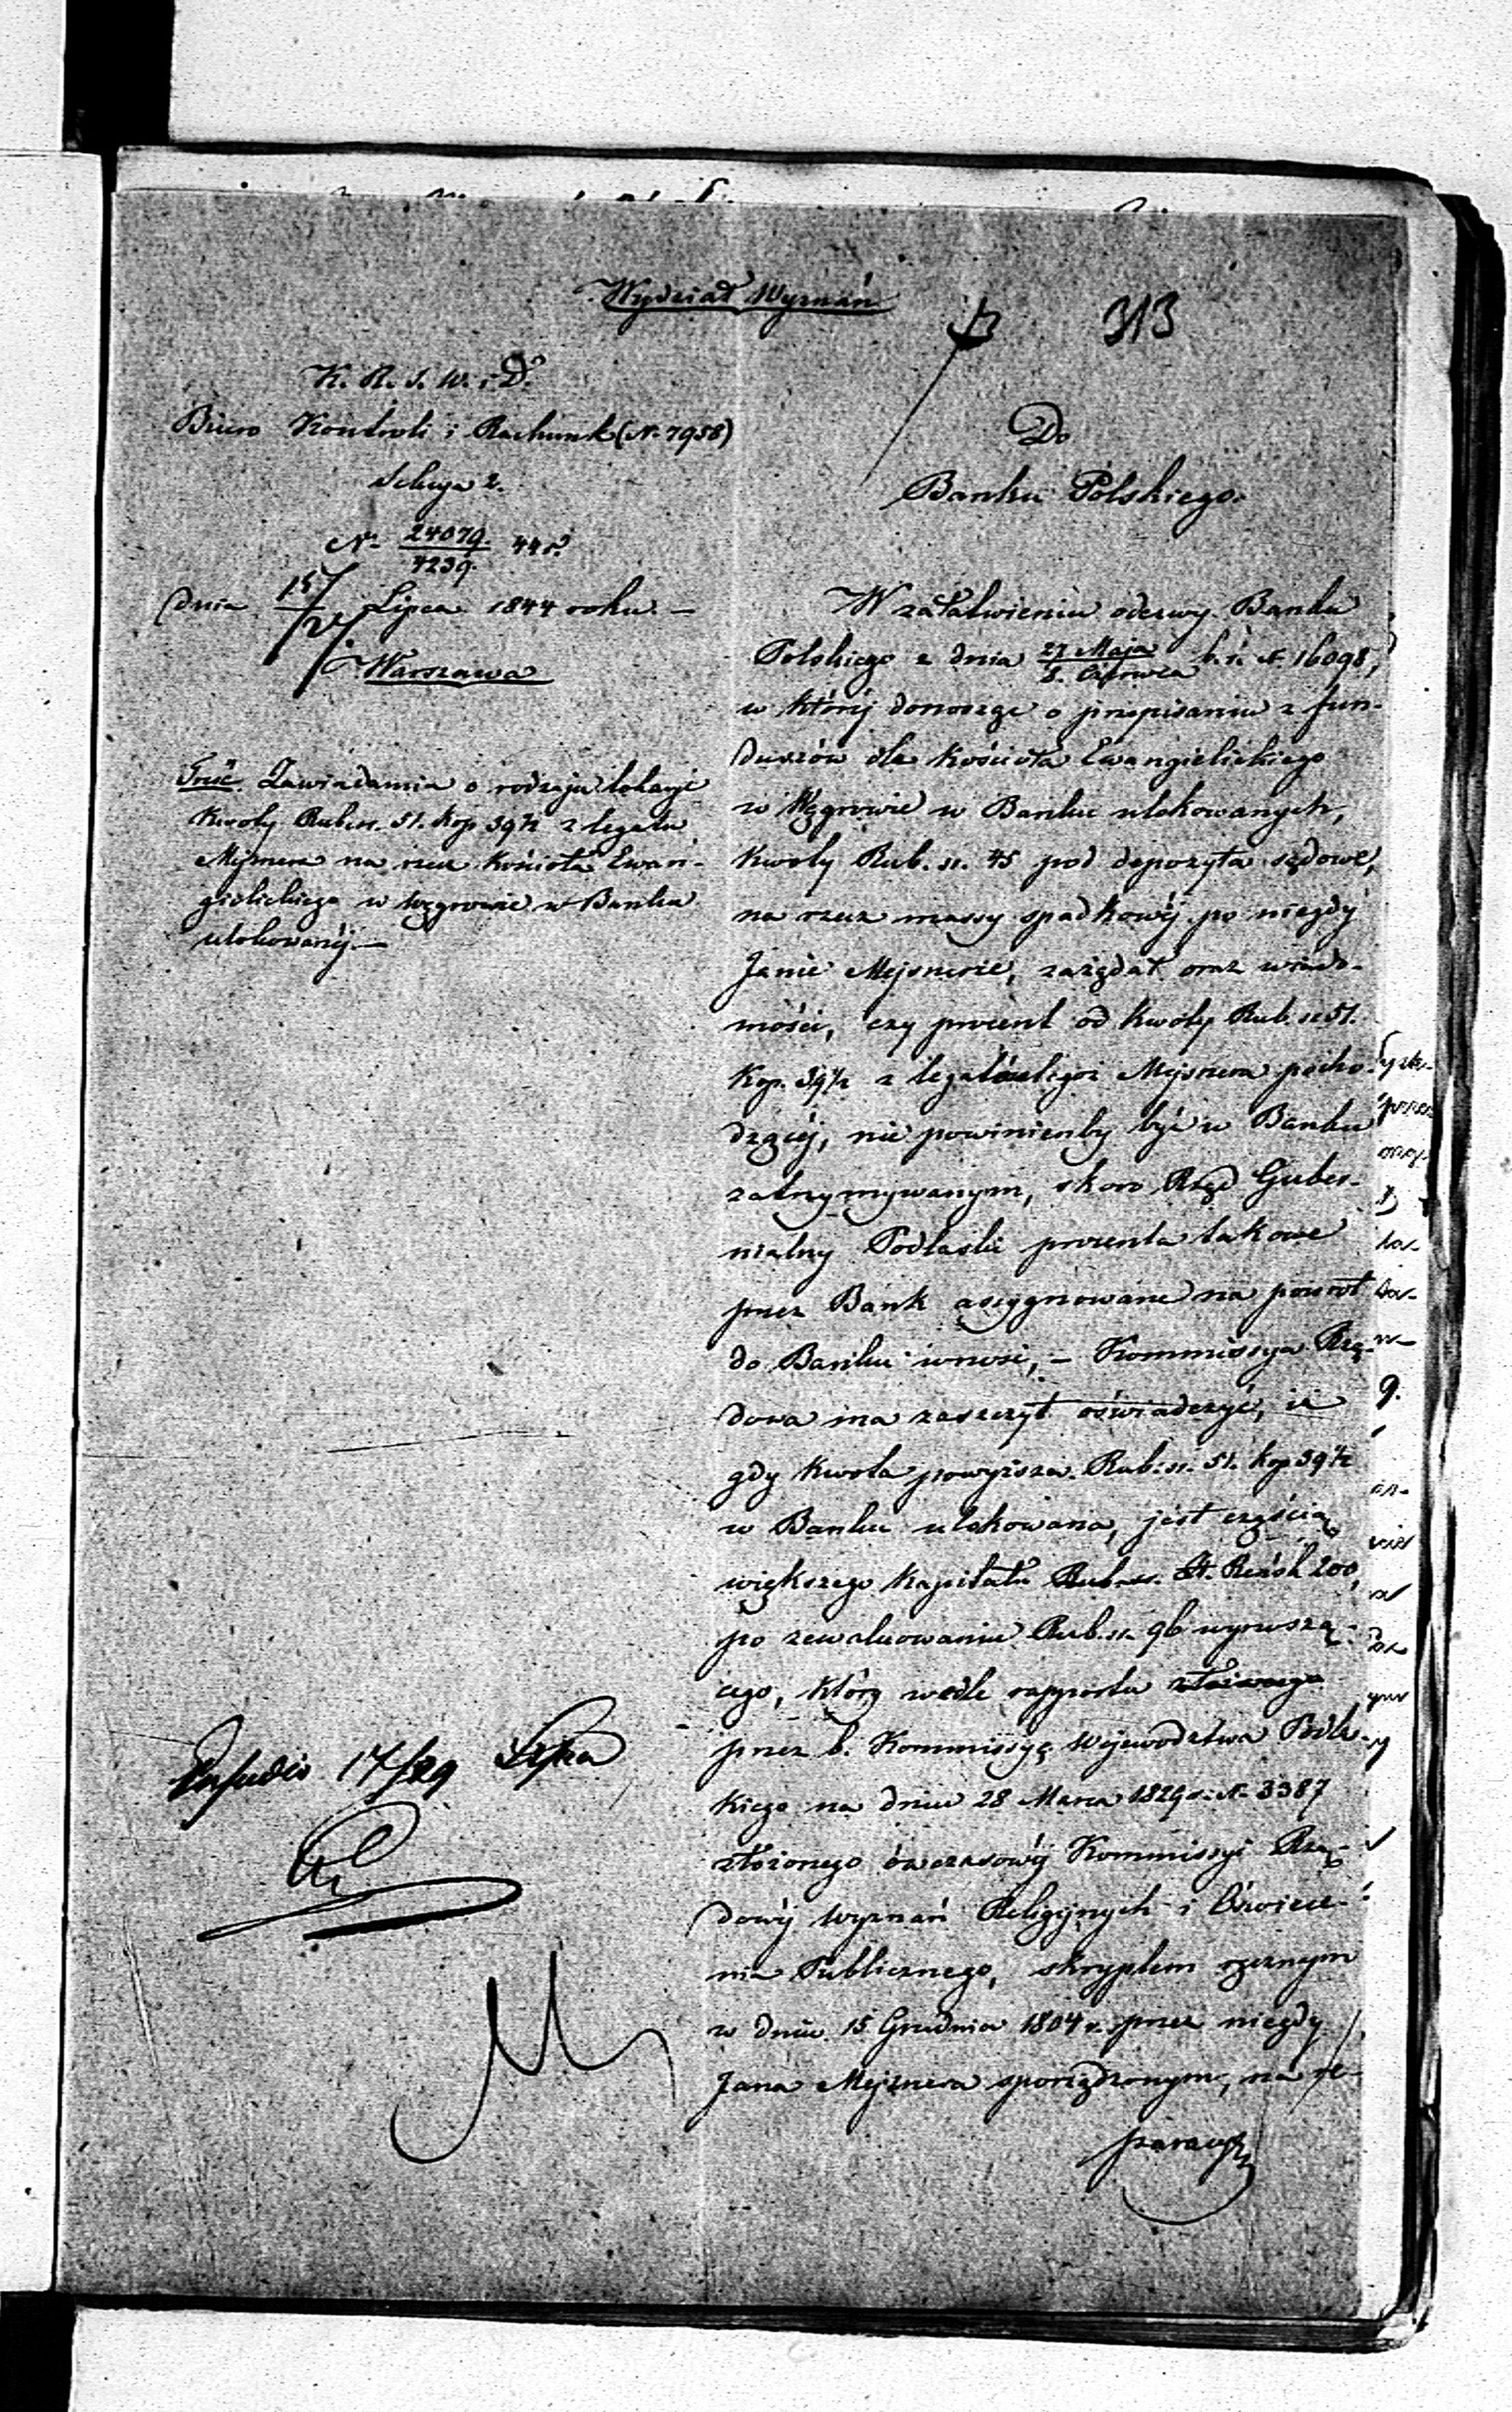 Wydział Wyznań
313
K. R. S. W. i D.
Biuro Kontroli i Rachunk (N. 7958)
Sekcya 2.
N. 24079/4239 44 r.
dnia 15/27 Lipca 1844 roku. —
Warszawa
Treść. Zawiadamia o rodzaju lokacyi
kwoty Rub. sr. 51. kop 39½ z legatu
Mejsnera na rzecz Kościoła Ewan-
gielickiego w Węgrowie w Banku
ulokowanéj. —
17/29 Lipca
Do
Banku Polskiego.
W załatwieniu odezwy Banku
Polskiego z dnia 27 Maja/8. Czerwca b. r. N. 16098,
w któréj donosząc o przepisaniu z fun-
duszów dla Kościoła Ewangielickiego
w Węgrowie w Banku ulokowanych,
kwoty Rub. sr. 45 pod depozyta sądowe,
na rzecz massy spadkowéj po niegdy
Janie Mejsnerie, zażądał oraz wiado-
mości, czy procent od kwoty Rub. sr 51.
Kop. 39½ z legatu Mejsnera pocho-
dzącéj, nie powinienby być w Banku
zatrzymywanym, skoro Rząd Guber-
nialny Podlaski procenta takowe
przez Bank assygnowane na powrót
do Banku wnosi, — Kommissya Rzą-
dowa ma zaszczyt oświadczyć, iż
gdy kwota powyższa Rub. sr. 51. kop 39½
w Banku ulokowana, jest częścią
większego kapitału 200,
po zewaluowaniu Rub. sr. 96 wynoszą-
cego, który wedle rapportu
przez b. Kommissyę Województwa Podla-
kiego na dniu 28 Marca 1829 r. N. 3387
złożonego ówczasowéj Kommissyi Rzą-
dowéj Wyznań Religijnych i Oświece-
nia Publicznego, skryptem ręcznym
w dniu 15 Grudnia 1804 r. przez niegdy
Jana Mejsnera sporządzonym, na re-
paracyę